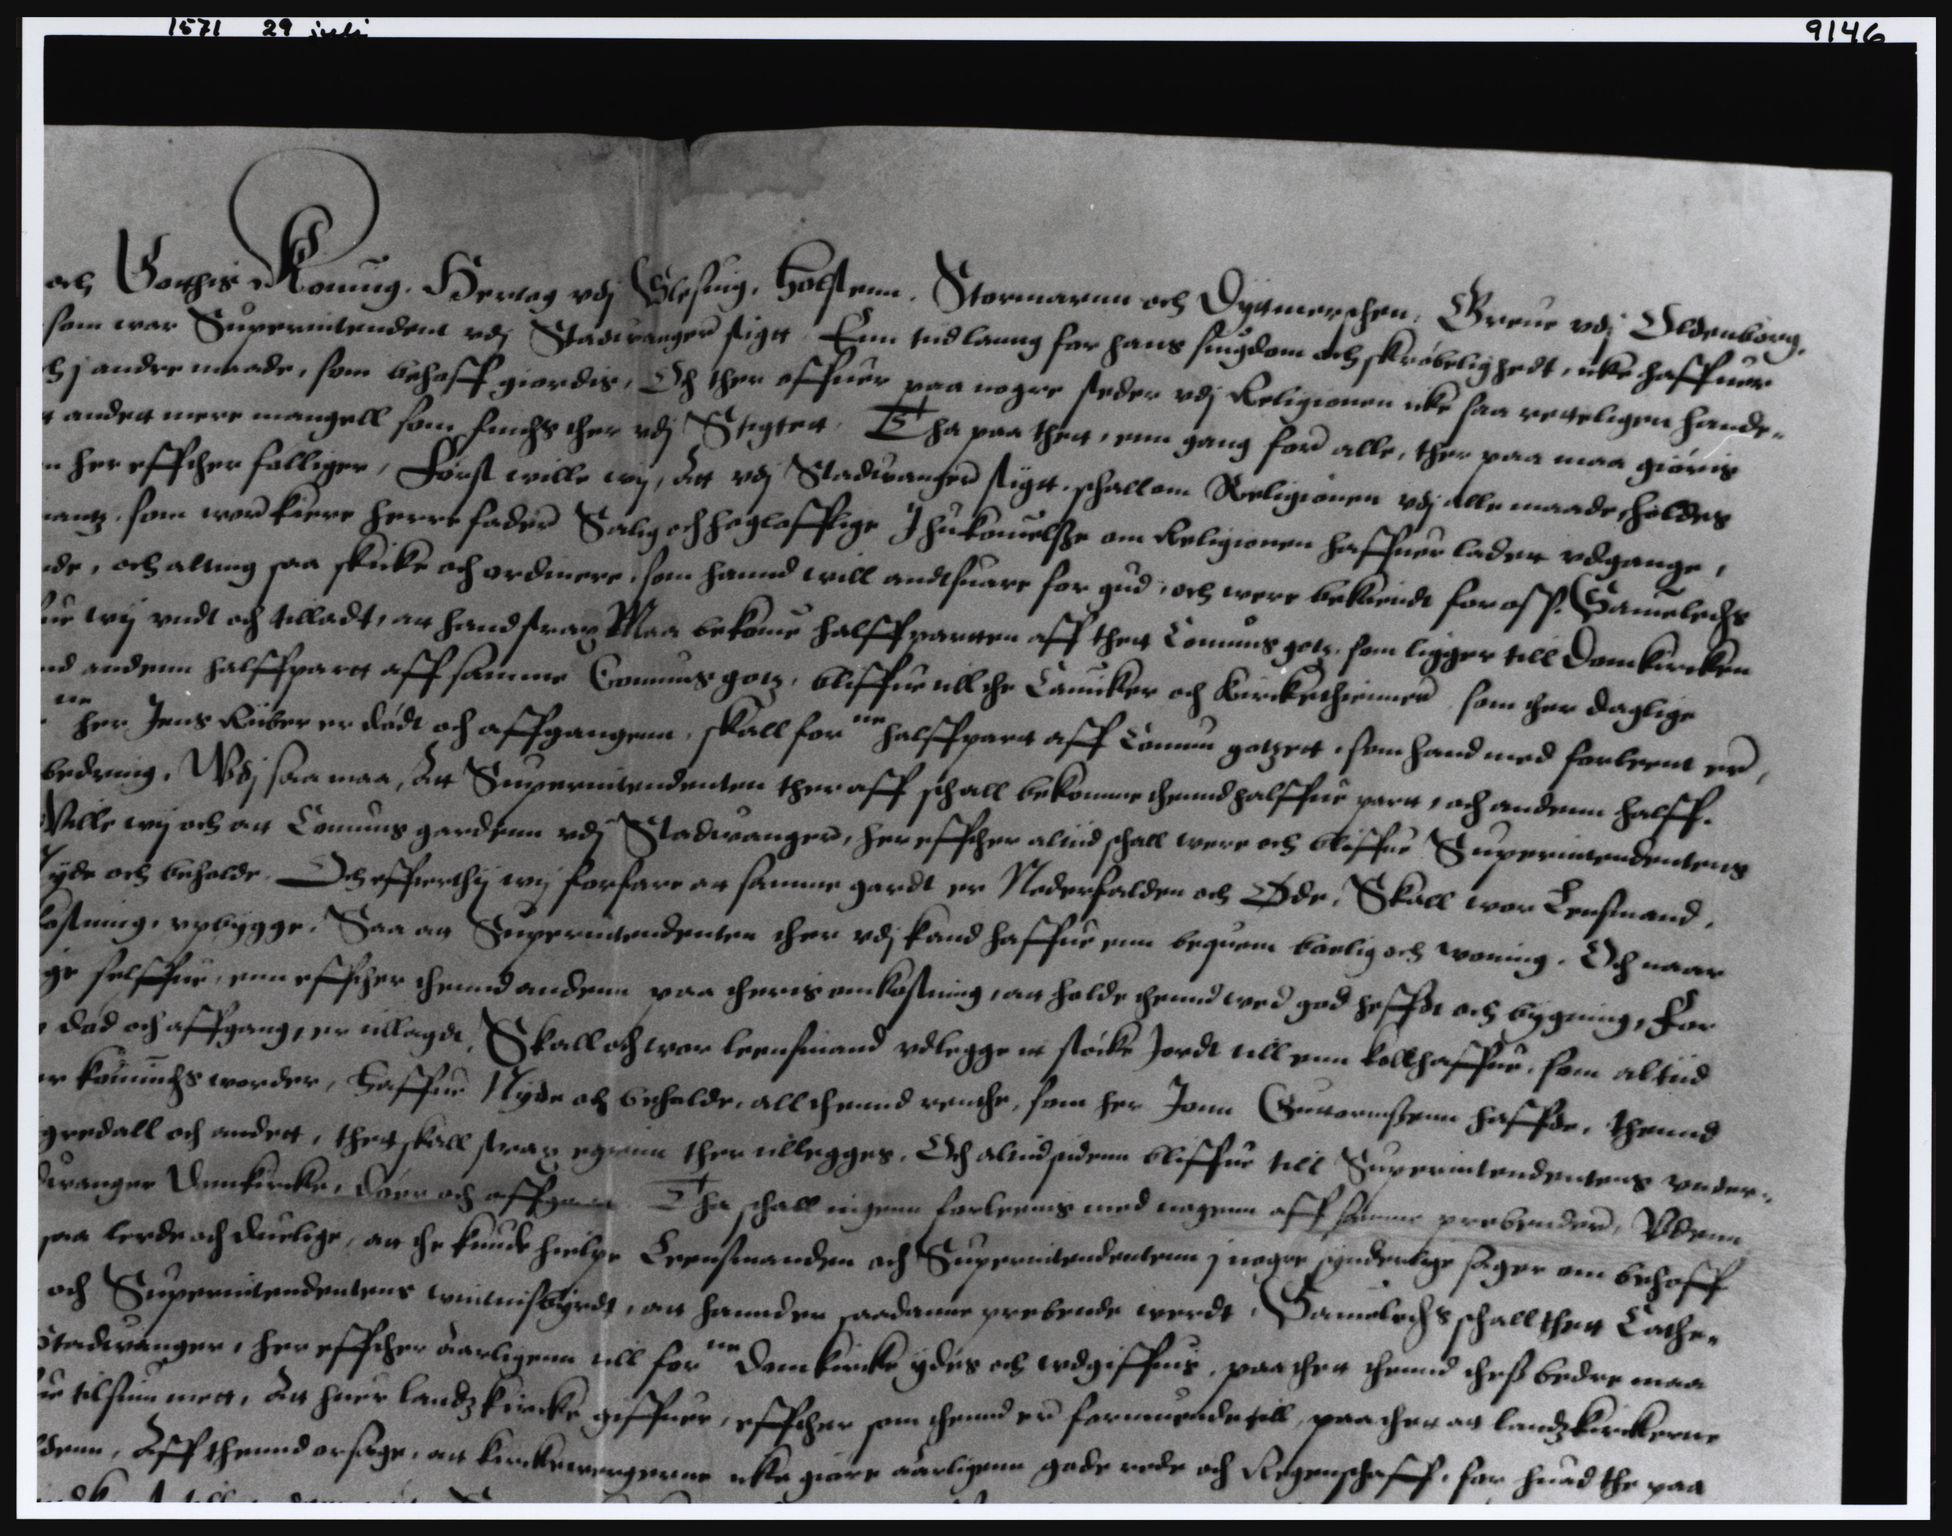 1571 29 juli
9146
och Gothis Konnig, Hertog vdj Slesuig, Holstenn, Stormarnn och Dytmerschen, Greue vdj Oldenborg,
som war Superintendent vdj Stadwanger stigt, Enn tud lanng for hans siugdom och skröbelighedt, icke haffuer
j andre maade, som behoff giordis, Och ther offuer paa nogre steder vdj Religionen icke saa retteligen hande-
andett mere mangell som finds ther vdj Stigtett, Tha paa thett, enn gang for alle, ther paa maa giöris
her effther follger, Först wille wij, Att vdj Stadwanger stigt, schall om Religionen vdj alle maade holdes
som wor kiere herre fader Salig och höglofflige Ihukommelsze om Religionen haffuer ladett vdgange,
och alting saa skicke och ordinere, som hannd will andtsuare for gud, och were bekiendt for oss. Sameledis
wij vndt och tilladt, att hand strax Maa bekome halffparten aff thett Comuns gotz, som ligger till Domkircken
andenn halffpartt aff samme Comuns gotz, bliffue till the Cannicker och Kirckethienner som ther daglige
ne her Jens Riber er dödt och affgangenn, skall for ne halffpart aff Comun gotzett, som hand med forleent er,
bedring, Vdj saa maa, Att Superintendenten ther aff schall bekomme thennd halffue part, och andenn halff-
Wille wij och att Comuns gardenn vdj Stadwanger, her effther altid schall were och bliffue Superintendentens
Nyde och beholde. Och effterthij wij forfare att samme gardt er Nederfalden och Øde, Skall wor Lensmand,
vpbygge, Saa att Superintendenten ther vdj kand haffue enn bequem boelig och woning. Och naar
selffue, enn effther thennd andenn paa theris omkostning, att holde thennd wed god hefft och bygning, For
död och affgang, er tillagdt, Skall och wor leensmand vdlegge it stöcke Jordt till enn kollhaffue, som altid
worder, Haffue Nyde och beholde, all thennd renthe, som her Jonn Guttormszenn haffde, thennd
och andett, thett skall strax igenn ther tillegges, Och altid sidenn bliffue till Superintendentens vnder-
Domkircke, döer och affgaar Tha schall ingenn forleenis med nogenn aff samme prebender, Vdenn
saa lerde och duelige, att the kunde hielpe Leensmanden och Superintendentenn j nogre synderlige sager om behoff
och Superintendentens windnisbyrdt, att hannder saadanne prebende werdt, Sameledis schall thett Cathe-
Stadwanger, her effther aarligenn till for ne Domkircke ydes och wdgiffuis, paa thett thennd thess bedre maa
Att huer landzkircke giffuer, effther som thennd er formuende till, paa thett att landzkirckerne
Aff thennd orsage, att kirckewergerne icke giöre aarligenn gode rede och Regenschaff, for huad the paa